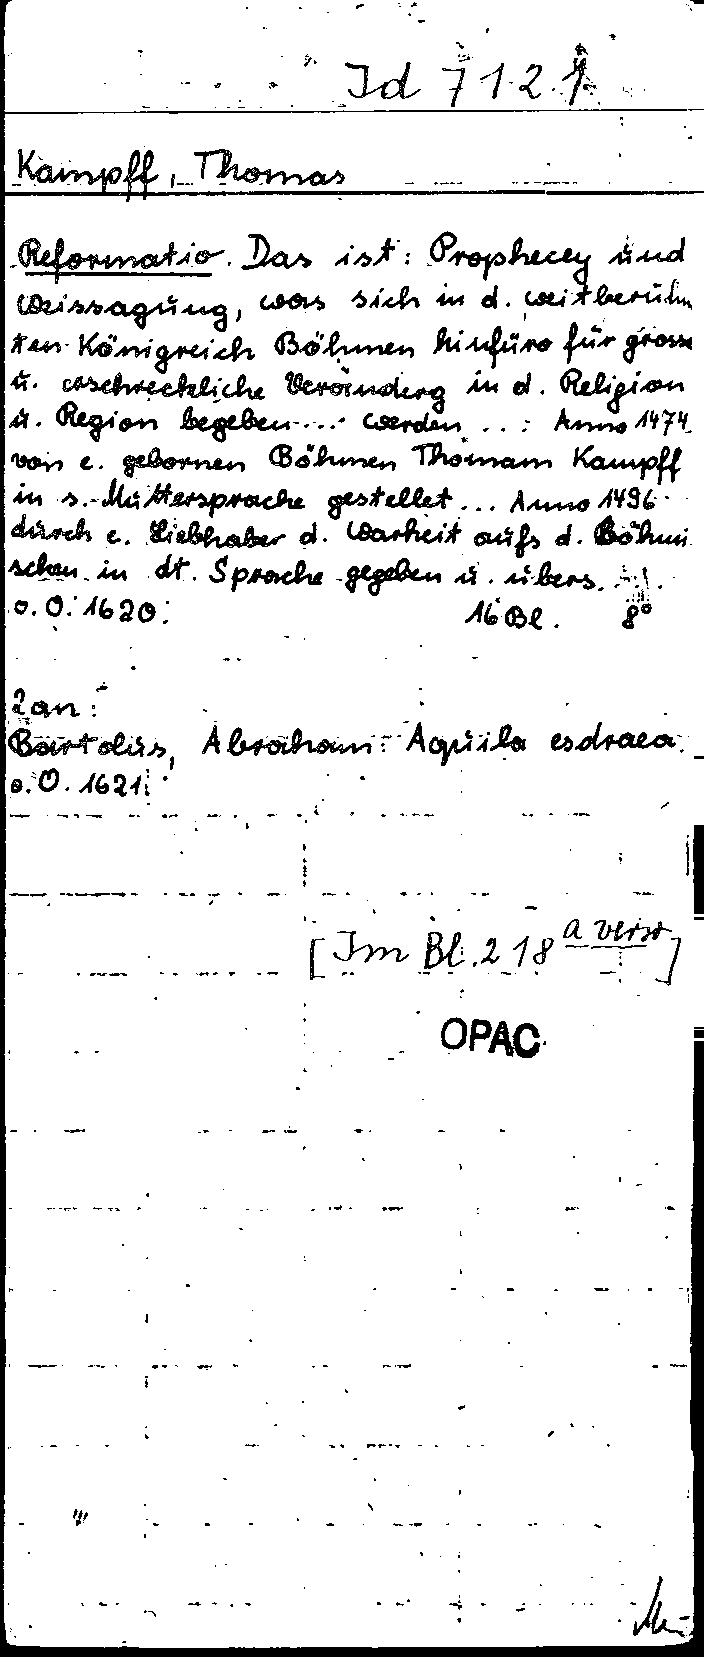 Id 7121
Kampff, Thomas
Reformatio. Das ist: Prophecey und
Weissagung, was sich in d. weitberühm
ten Königreich Böhmen hinfüro für grosse
u. erschreckliche Veränderg in d. Religion
u. Region begeben... werden ...: Anno 1474
von e. gebornen Böhmen Thomam Kampff
in s. Muttersprache gestellet... Anno 1496
durch e. Liebhaber d. Warheit aufs d. Böhmi
schen in dt. Sprache gegeben u. übers.
o.O. 1620. 16 Bl. 8°
2an:
Bartolus, Abraham: Aquila esdraea.
o.O. 1621.
[Im Bl. 218 a verso]
OPAC